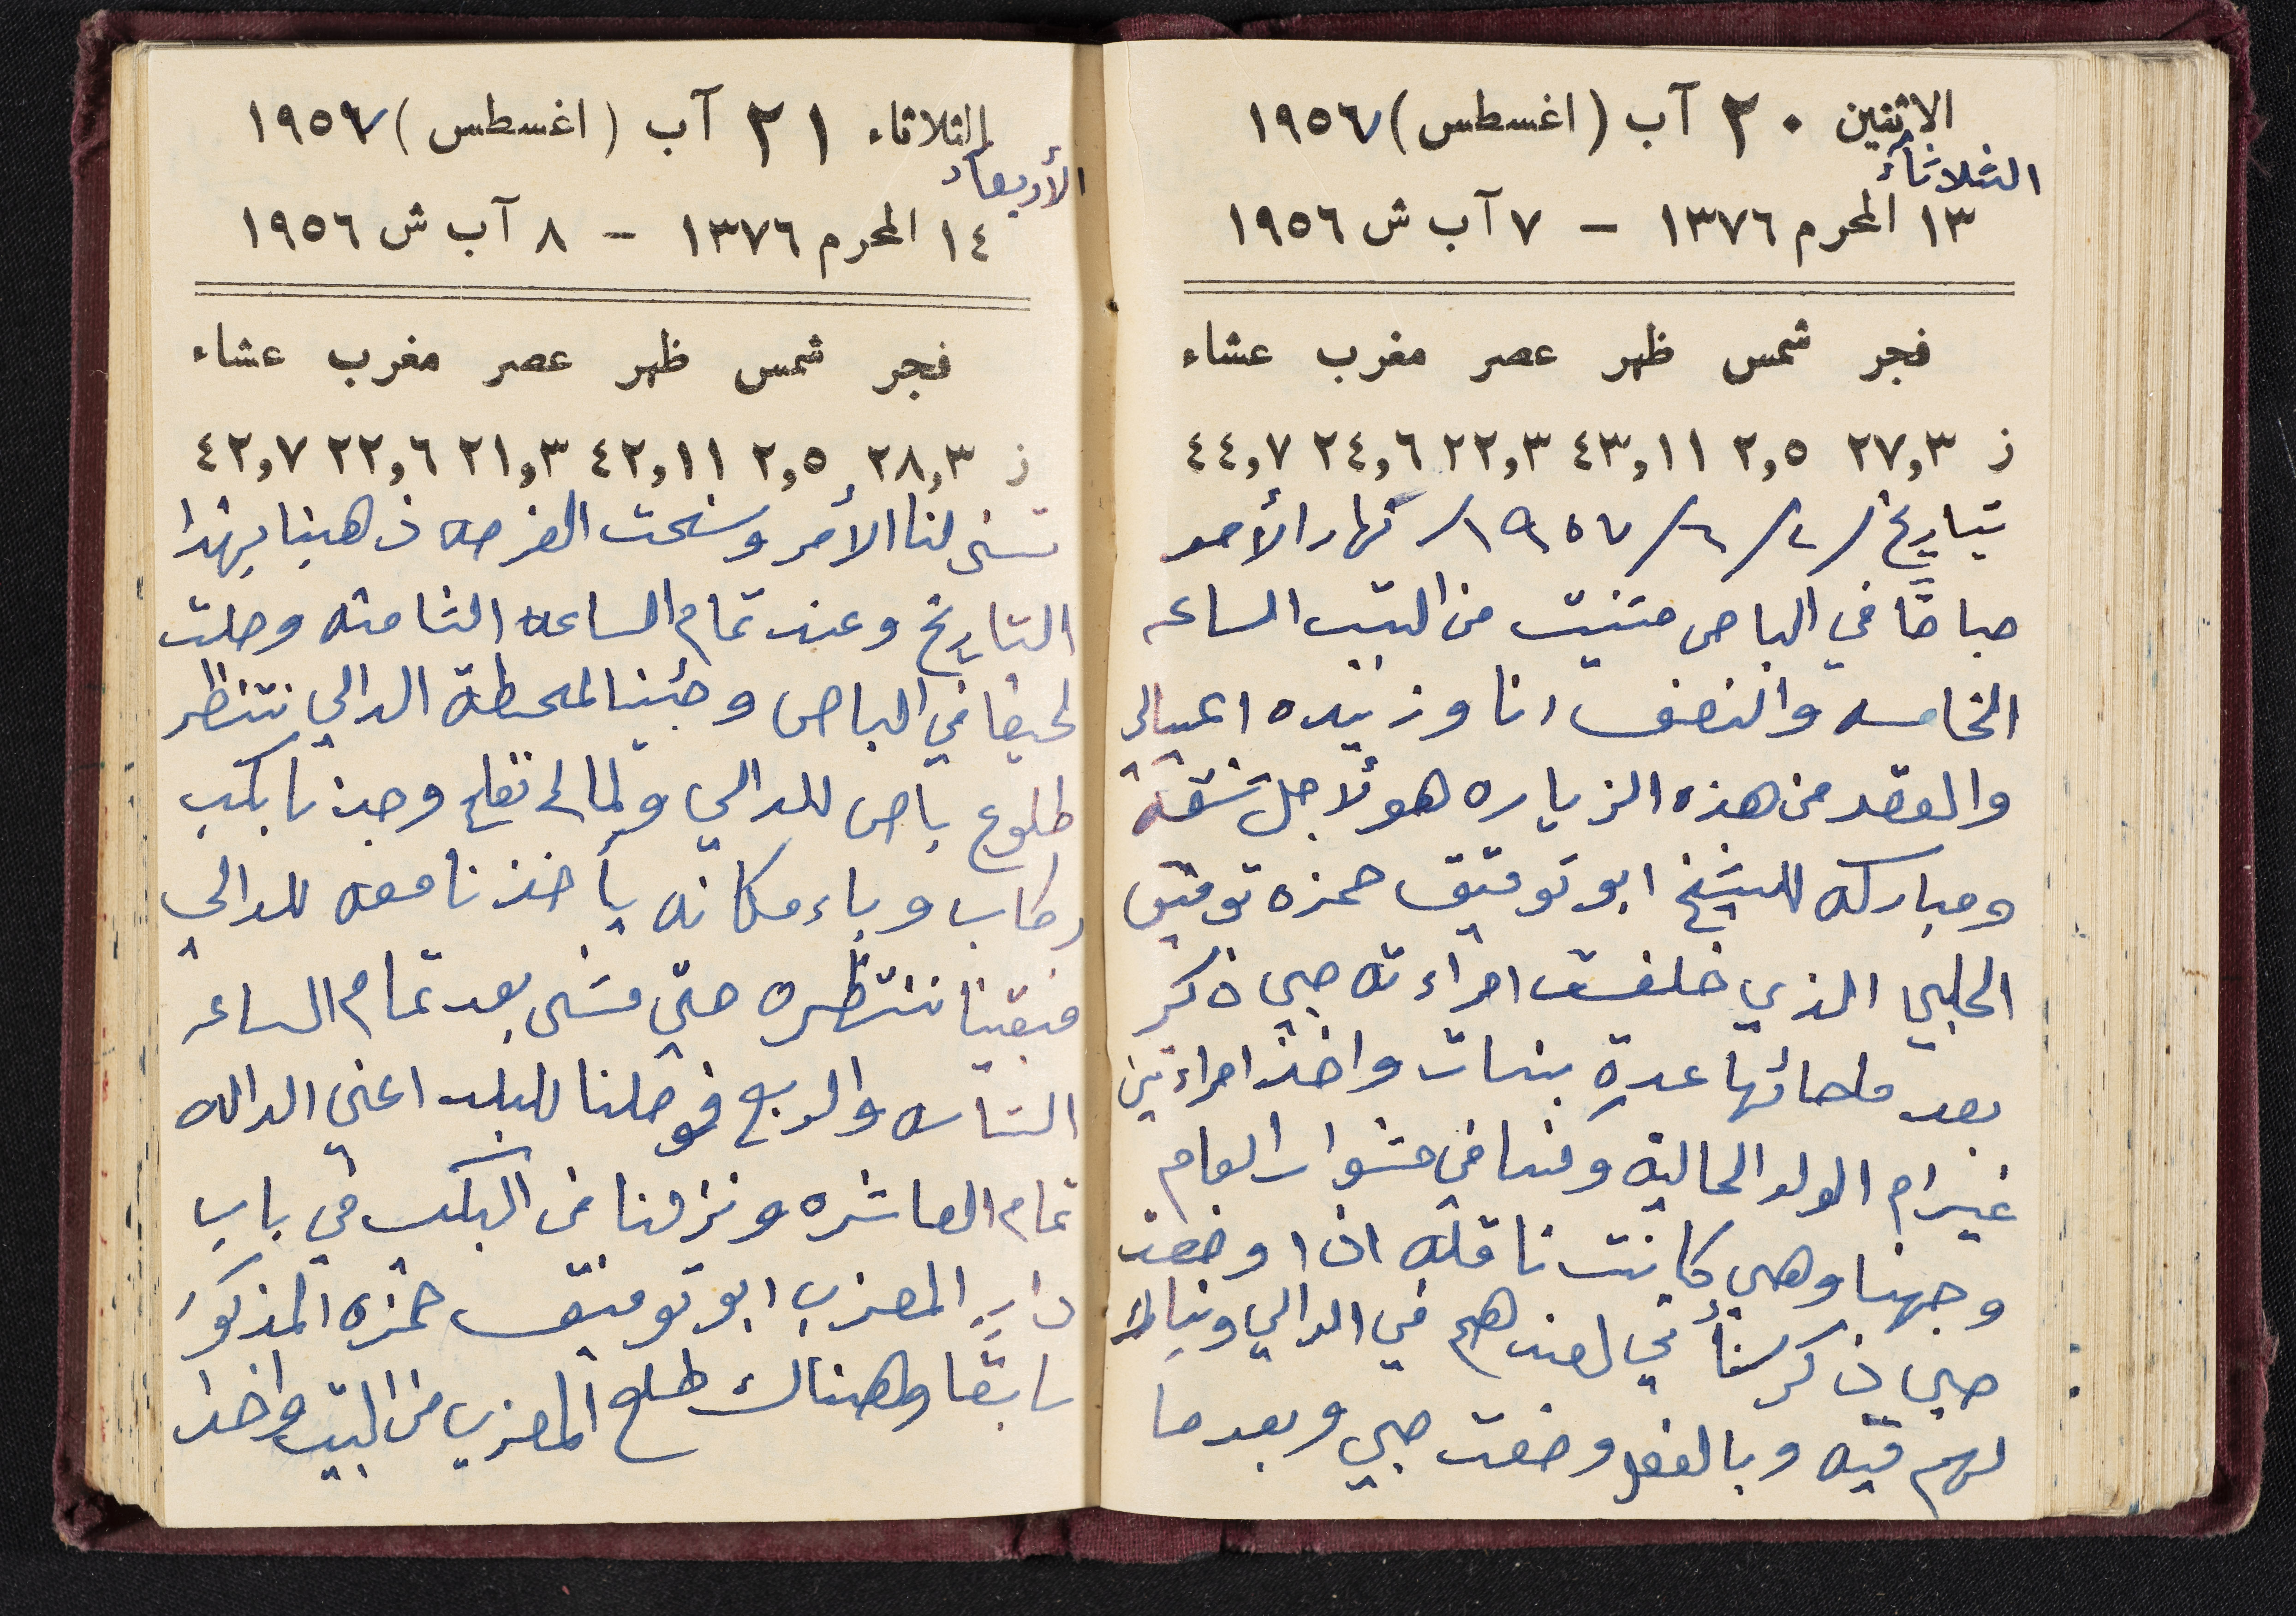 الاثنين ٢٠ آب (اغسطس) ١٩٥٧
الثلاثاء
١٣ المحرم ١٣٧٦ – ٧ آب ش ١٩٥٦
فجر شمس ظهر عصر مغرب عشاء
ز ٢٧,٣ ٢,٥ ٤٣,١١ ٢٢,٣ ٢٤,٦ ٤٤,٧
بتاريخ /٢/٦/١٩٥٧/ نهار الأحد
صباحًا في الباص متنيت من البيت الساعه
الخامسه والنصف انا وزبيده اعيالي
والقصد من هذه الزياره هو لأجل شقة
ومباركه للشيخ ابو توفيق حمزه توفيق
الحلبي الذي خلفت امراءته صبي ذكر
بعد ماجائها عدة بنات واخذ امراءتين
غير ام الولد الحاليه وكنا في مشوار العام
وجهنا وهي كانت ناقله اذا وضعت
صبي ذكر نأتي لعندهم في الدالي ونبارك
لهم فيه وبالفعل وضعت صبي وبعدما
الثلاثاء ٢١ آب (اغسطس) ١٩٥٧
الأربعاء
١٤ المحرم ١٣٧٦ – ٨ آب ش ١٩٥٦
فجر شمس ظهر عصر مغرب عشاء
ز ٢٨,٣ ٢,٥ ٤٢,١١ ٢١,٣ ٢٢,٦ ٤٢,٧
تسنى لنا الأمر وسنحت الفرصه ذهبنا بهذا
التاريخ وعند تمام الساعه الثامنه وصلت
لحيفا في الباص وجئنا لمحطة الدالي ننتظر
طلوع باص للدالي ولما لم نفلح وجدنا بكب
ركاب وباءمكانه يأخذنا معه للدالي
فبقينا ننتظره حتى مشى بعد تمام الساعه
التاسه والربع فوصلنا للبلد اعني الداليه
تمام العاشره ونزلنا من البكب في باب
دار المعزب ابو توفيق حمزه المذكور
سابقًا وهناك طلع المعزب من البيت واخذ